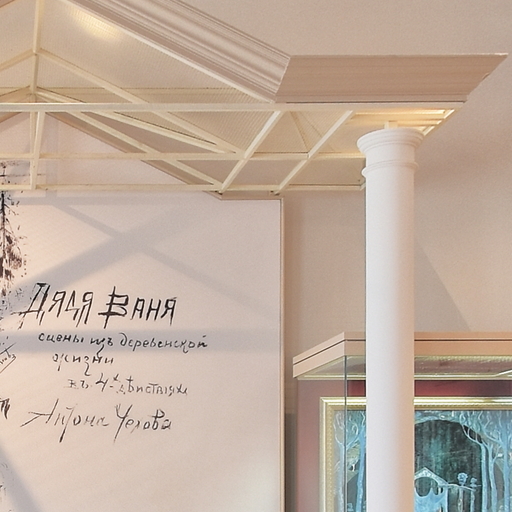 Дядя Ваня
сцены изъ деревенской
жизни
въ 4-хъ действiяхъ
Антона Чехова